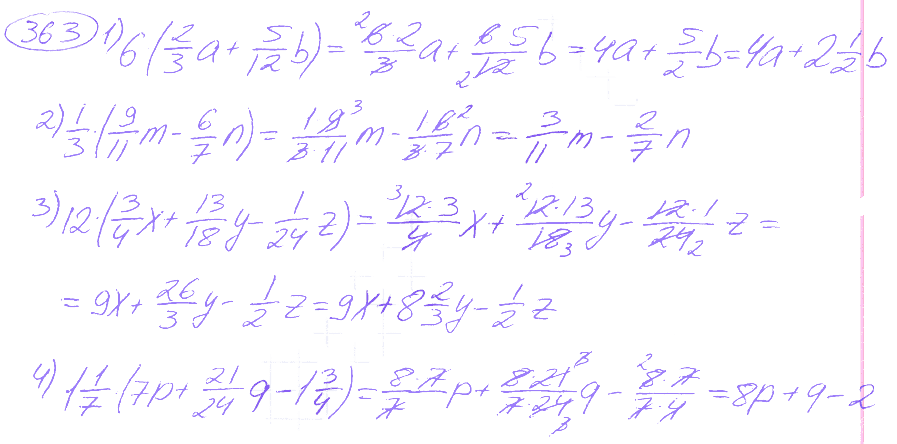 363 1) 6(2/3 a + 5/12 b) = 6·2/3 a + 6·5/12 b = 4a + 5/2 b = 4a + 2 1/2 b
2) 1/3·(9/11 m - 6/7 n) = 1·9/3·11 m - 1·6/3·7 n = 3/11 m - 2/7 n
3) 12·(3/4 x + 13/18 y - 1/24 z) = 12·3/4 x + 12·13/18 y - 12·1/24 z =
= 9x + 26/3 y - 1/2 z = 9x + 8 2/3 y - 1/2 z
4) 1 1/7·(7p + 21/24 q - 1 3/4) = 8·7/7 p + 8·21/7·24 q - 8·7/7·4 = 8p + q - 2